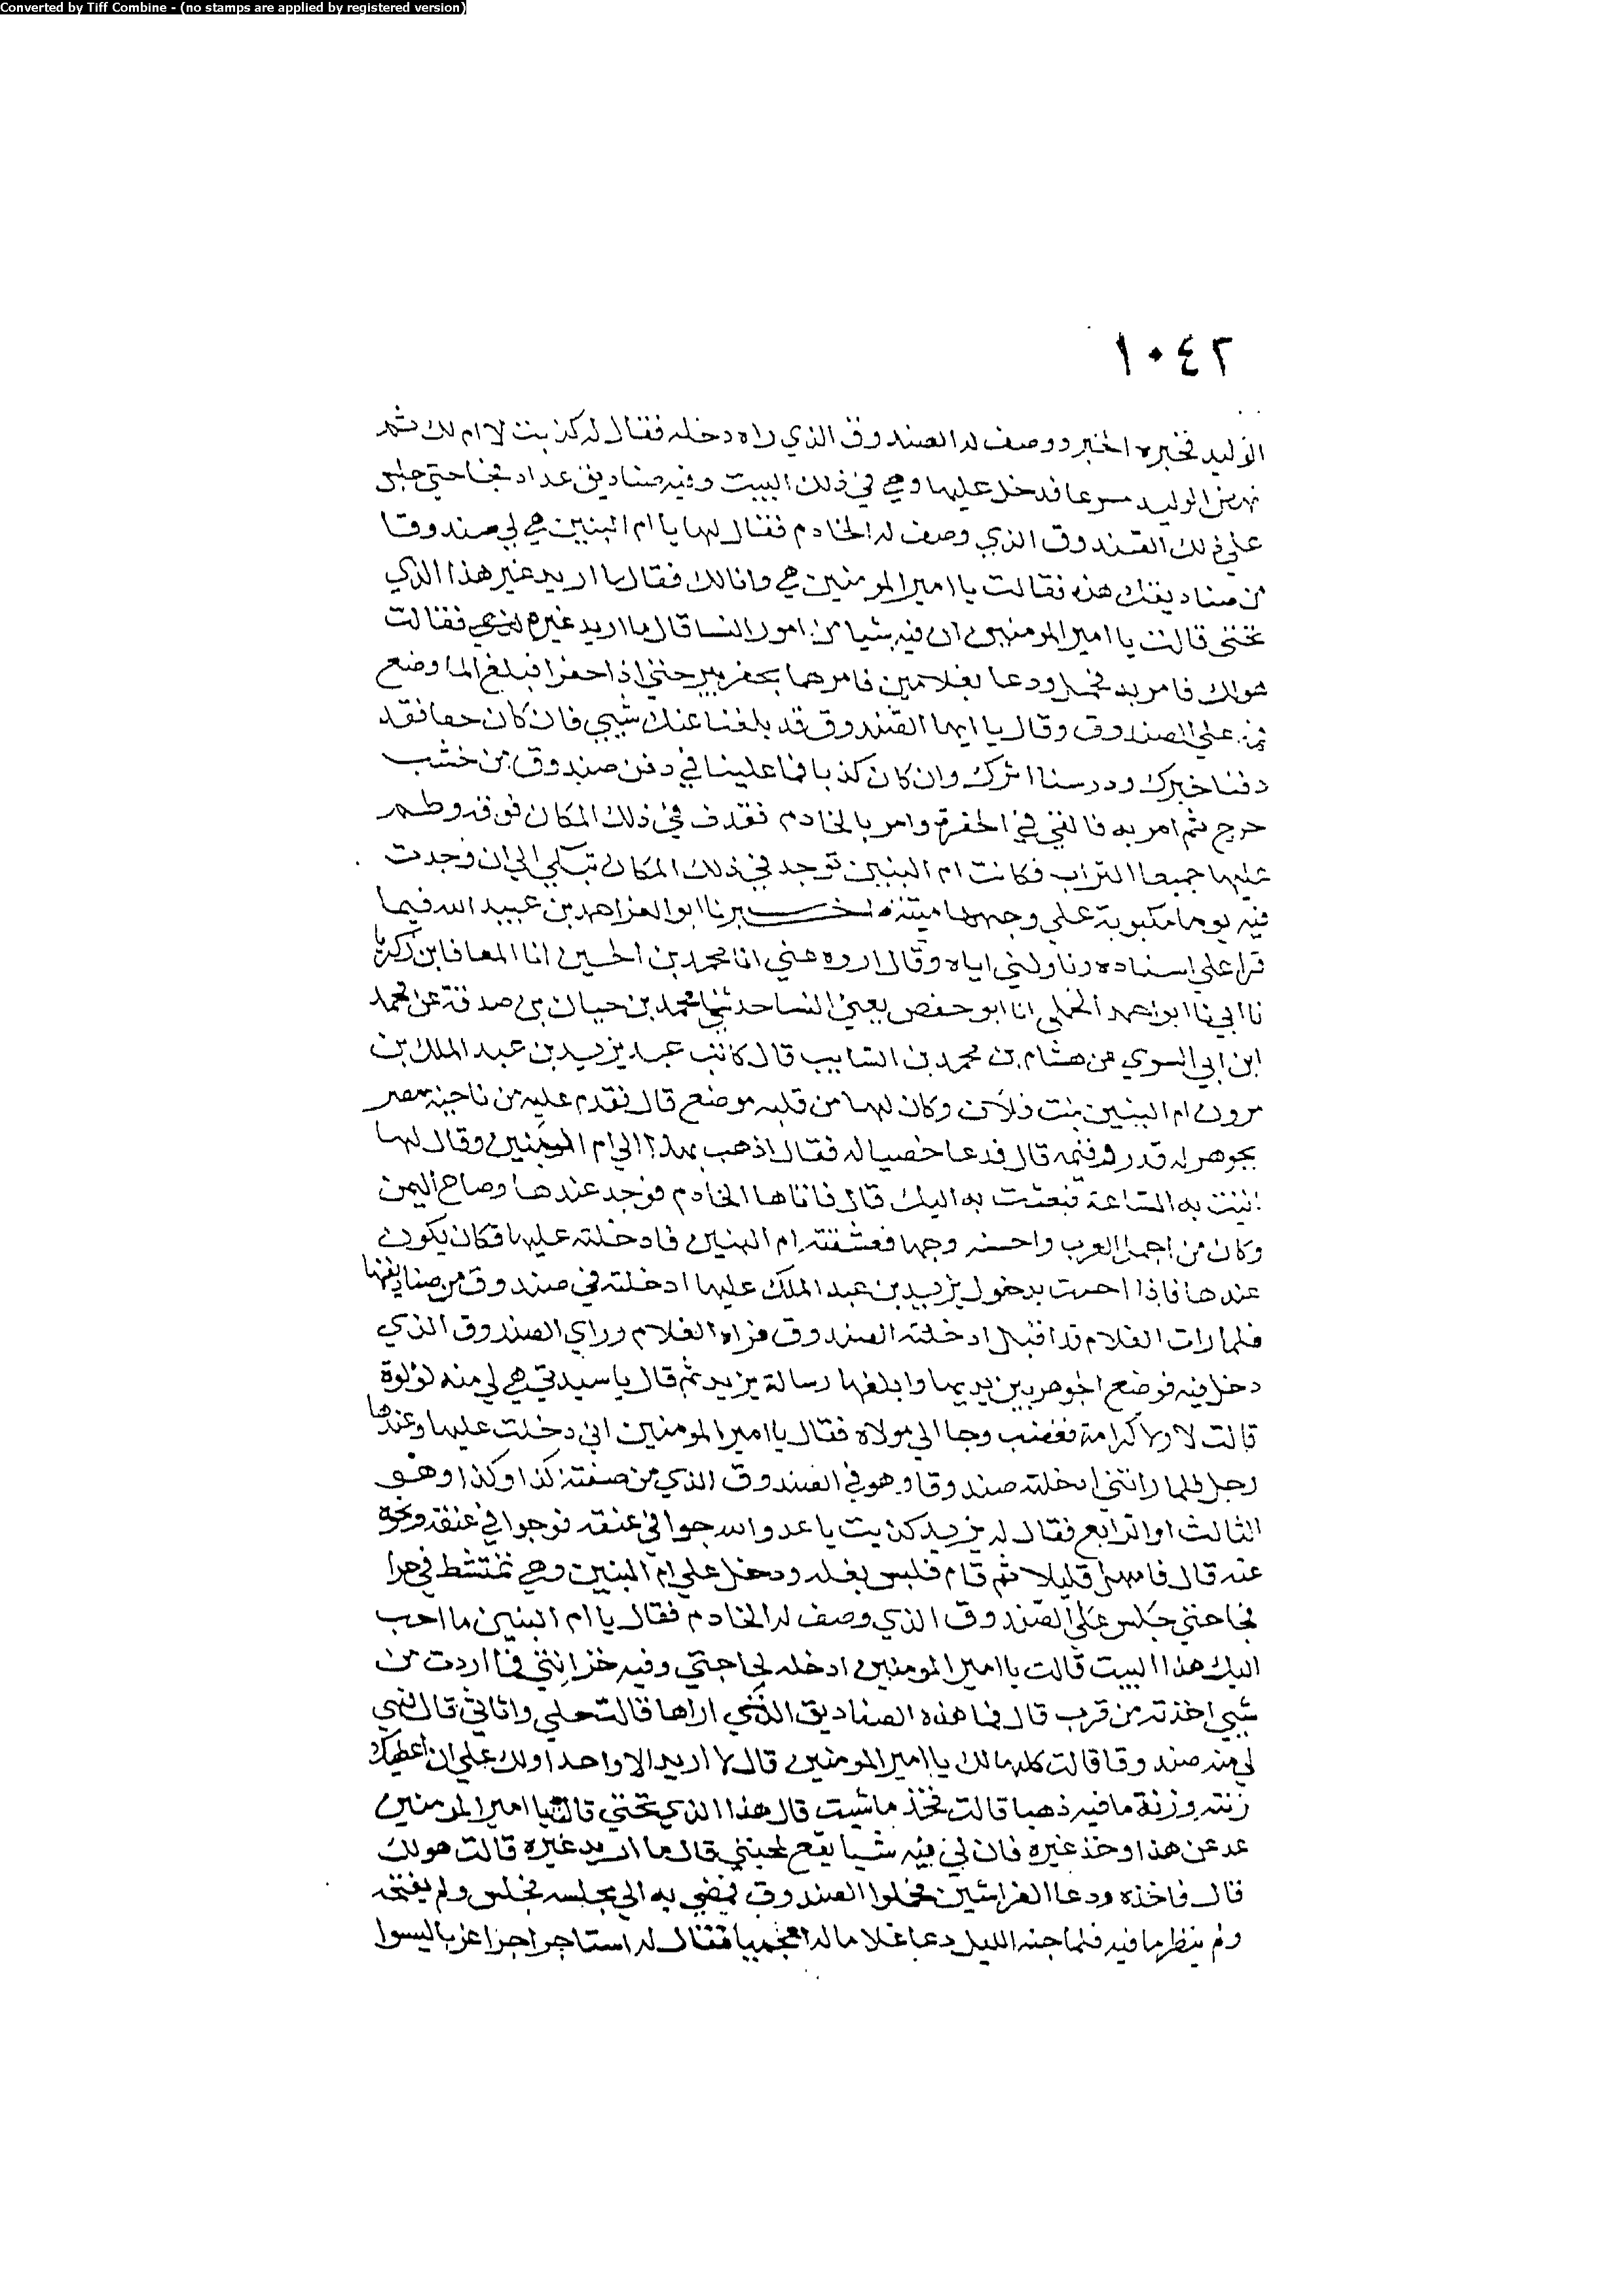 Converted by Tiff Combine - (no stamps are applied by registered version)
١٠٤٢
الوليد فخبره الخبر ووصف له الصندوق الذي راه دخله فقال له كذبت لا ام لك ثم
نهض الوليد مسرعا فدخل عليها وهي في ذلك البيت وفيه صناديق عداد فجا حتي جلس
علي ذلك الصندوق الذي وصف له الخادم فقال لها يا ام البنين هبي لي صندوقا
من صناديقك هذه فقالت يا امير المومنين هي وانا لك فقال ما اريد غير هذا الذي
تحتي قالت يا امير المومنين ان فيه شيا من امور النسا قال ما اريد غيره فقالت
هو لك فامر به فحمل ودعا بغلامين فامرهما بحفر بير حتي اذا حفرا فبلغ الما وضع
فمه علي الصندوق وقال يا ايها الصندوق قد بلغنا عنك شيي فان كان حقا فقد
دفنا خبرك ودرسنا اثرك وان كان كذبا فما علينا في دفن صندوق من خشب
حرج ثم امر به فالقي في الحفرة وامر بالخادم فقذف في ذلك المكان فوقه وطم
عليها جميعا التراب فكانت ام البنين توجد في ذلك المكان تبكي الي ان وجدت
فيه يوما مكبوبة علي وجهها ميتة اخبرنا ابو العز احمد بن عبيد الله فيما
قرا علي اسناده وناولني اياه وقال اروه عني انا محمد بن الحسين انا المعافا بن زكريا
نا ابي نا ابو احمد الختلي انا ابو حفص يعني النسا حدثني محمد بن حيان بن صدقة عن محمد
ابن ابي السري عن هشام بن محمد بن السايب قال كانت عند يزيد بن عبد الملك بن
مرون ام البنين بنت فلان وكان لها من قلبه موضع قال فقدم عليه من ناحية مصر
بجوهر له قدر وقيمة قال فدعا خصيا له فقال اذهب بهذا الي ام البنين وقال لها
اتيت به الساعة فبعثت به اليك قال فاتاها الخادم فوجد عندها وضاح اليمن
وكان من اجمل العرب واحسنه وجها فعشقته ام البنين فادخلته عليها فكان يكون
عندها فاذا احست بدخول يزيد بن عبد الملك عليها ادخلته في صندوق من صناديقها
فلما رات الغلام قد اقبل ادخلته الصندوق فراه الغلام وراي الصندوق الذي
دخل فيه فوضع الجوهر بين يديها وابلغها رسالة يزيد ثم قال يا سيدتي هبي لي منه لولوة
قالت لا ولا كرامة فغضب وجا الي مولاه فقال يا امير المومنين اني دخلت عليها وعندها
رجل فلما راتني ادخلته صندوقا وهو في الصندوق الذي من صفته كذا وكذا وهو
الثالث او الرابع فقال له يزيد كذبت يا عدو الله جوا في عنقه فوجوا في عنقه ونحوه
عنه قال فامهل قليلا ثم قام فلبس نعله ودخل علي ام البنين وهي تمتشط في
فجا حتي جلس علي الصندوق الذي وصف له الخادم فقال يا ام البنين ما احب
اليك هذا البيت قالت يا امير المومنين ادخله لحاجتي وفيه خزانتي فما اردت من
شيي اخذته من قرب قال فما هذه الصناديق التي اراها قالت حلي واثاثي قال فهبي
لي منه صندوقا قالت كلها لك يا امير المومنين قال لا اريد الا واحدا ولك علي ان اعطيك
زنته وزنة ما فيه ذهبا قالت فخذ ما شيت قال هذا الذي تحتي قالت يا امير المومنين
عد عن هذا وخذ غيره فان لي فيه شيا يقع لمحبتي قال ما اريد غيره قالت هو لك
قال فاخذه ودعا الفراشين فحملوا الصندوق فمضي به الي مجلسه فجلس ولم يفتحه
ولم ينظر ما فيه فلما جنه الليل دعا غلاما له اعجميا فقال له استاجر اجرا غربا ليسوا